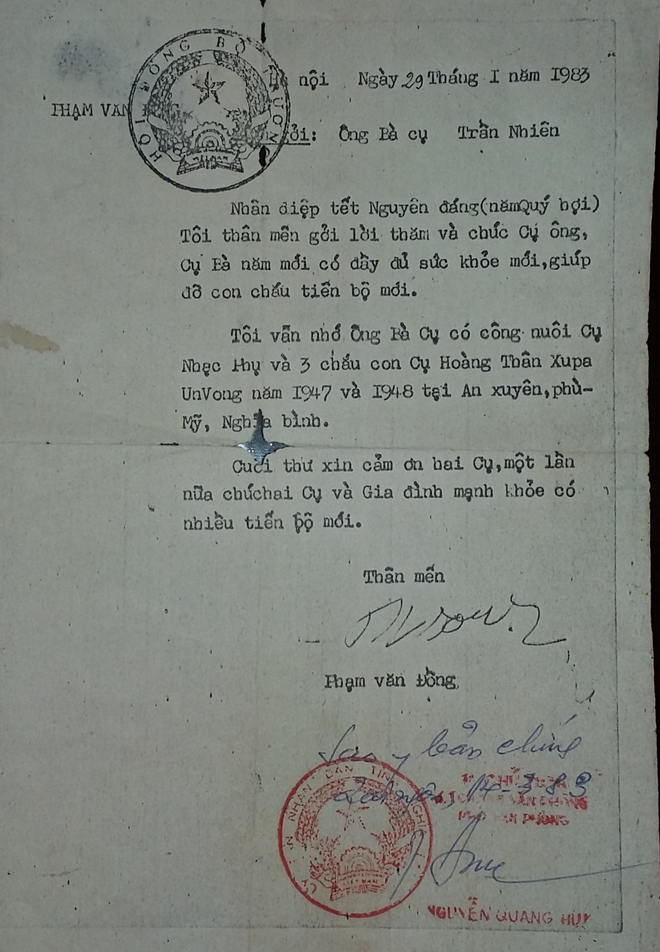 HỘI ĐỒNG BỘ TRƯỞNG
nội Ngày 29 Tháng I năm 1983
PHẠM VĂN
gởi: Ông Bà cụ Trần Nhiên
Nhân diệp tết Nguyên đáng(nămQuý hợi)
Tôi thân mến gởi lời thăm và chúc Cụ ông,
Cụ Bà năm mới có đầy đủ sức khỏe mới,giúp
đỡ con cháu tiến bộ mới.
Tôi vẫn nhớ Ông Bà Cụ có công nuôi Cụ
Nhạc Phụ và 3 cháu con Cụ Hoàng Thân Xupa
UnVong năm 1947 và 1948 tại An xuyên,phù-
Mỹ, Nghĩa bình.
Cuối thư xin cảm ơn hai Cụ,một lần
nữa chúchai Cụ và Gia đình mạnh khỏe có
nhiều tiến bộ mới.
Thân mến
Phạm văn Đồng
Sao y bản chính
14-3-83
VĂN PHÒNG
VĂN PHÒNG
NHÂN DÂN TỈNH
NGUYỄN QUANG HUY